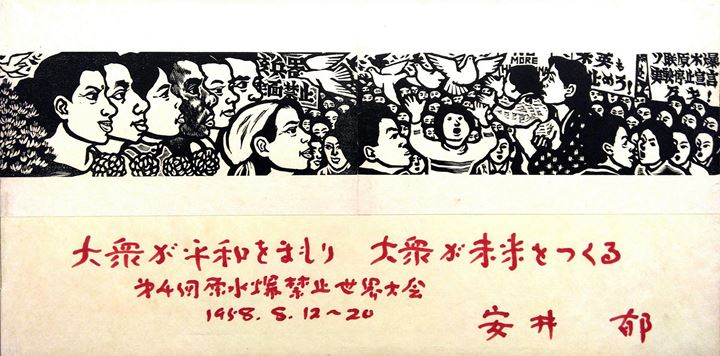 兵器
面禁止
MORE
米英も
止めろ!
原水爆
実験停止宣言
大衆が平和をまもり 大衆が未来をつくる
第4回原水爆禁止世界大会
1958. 8. 12~20
安井 郁